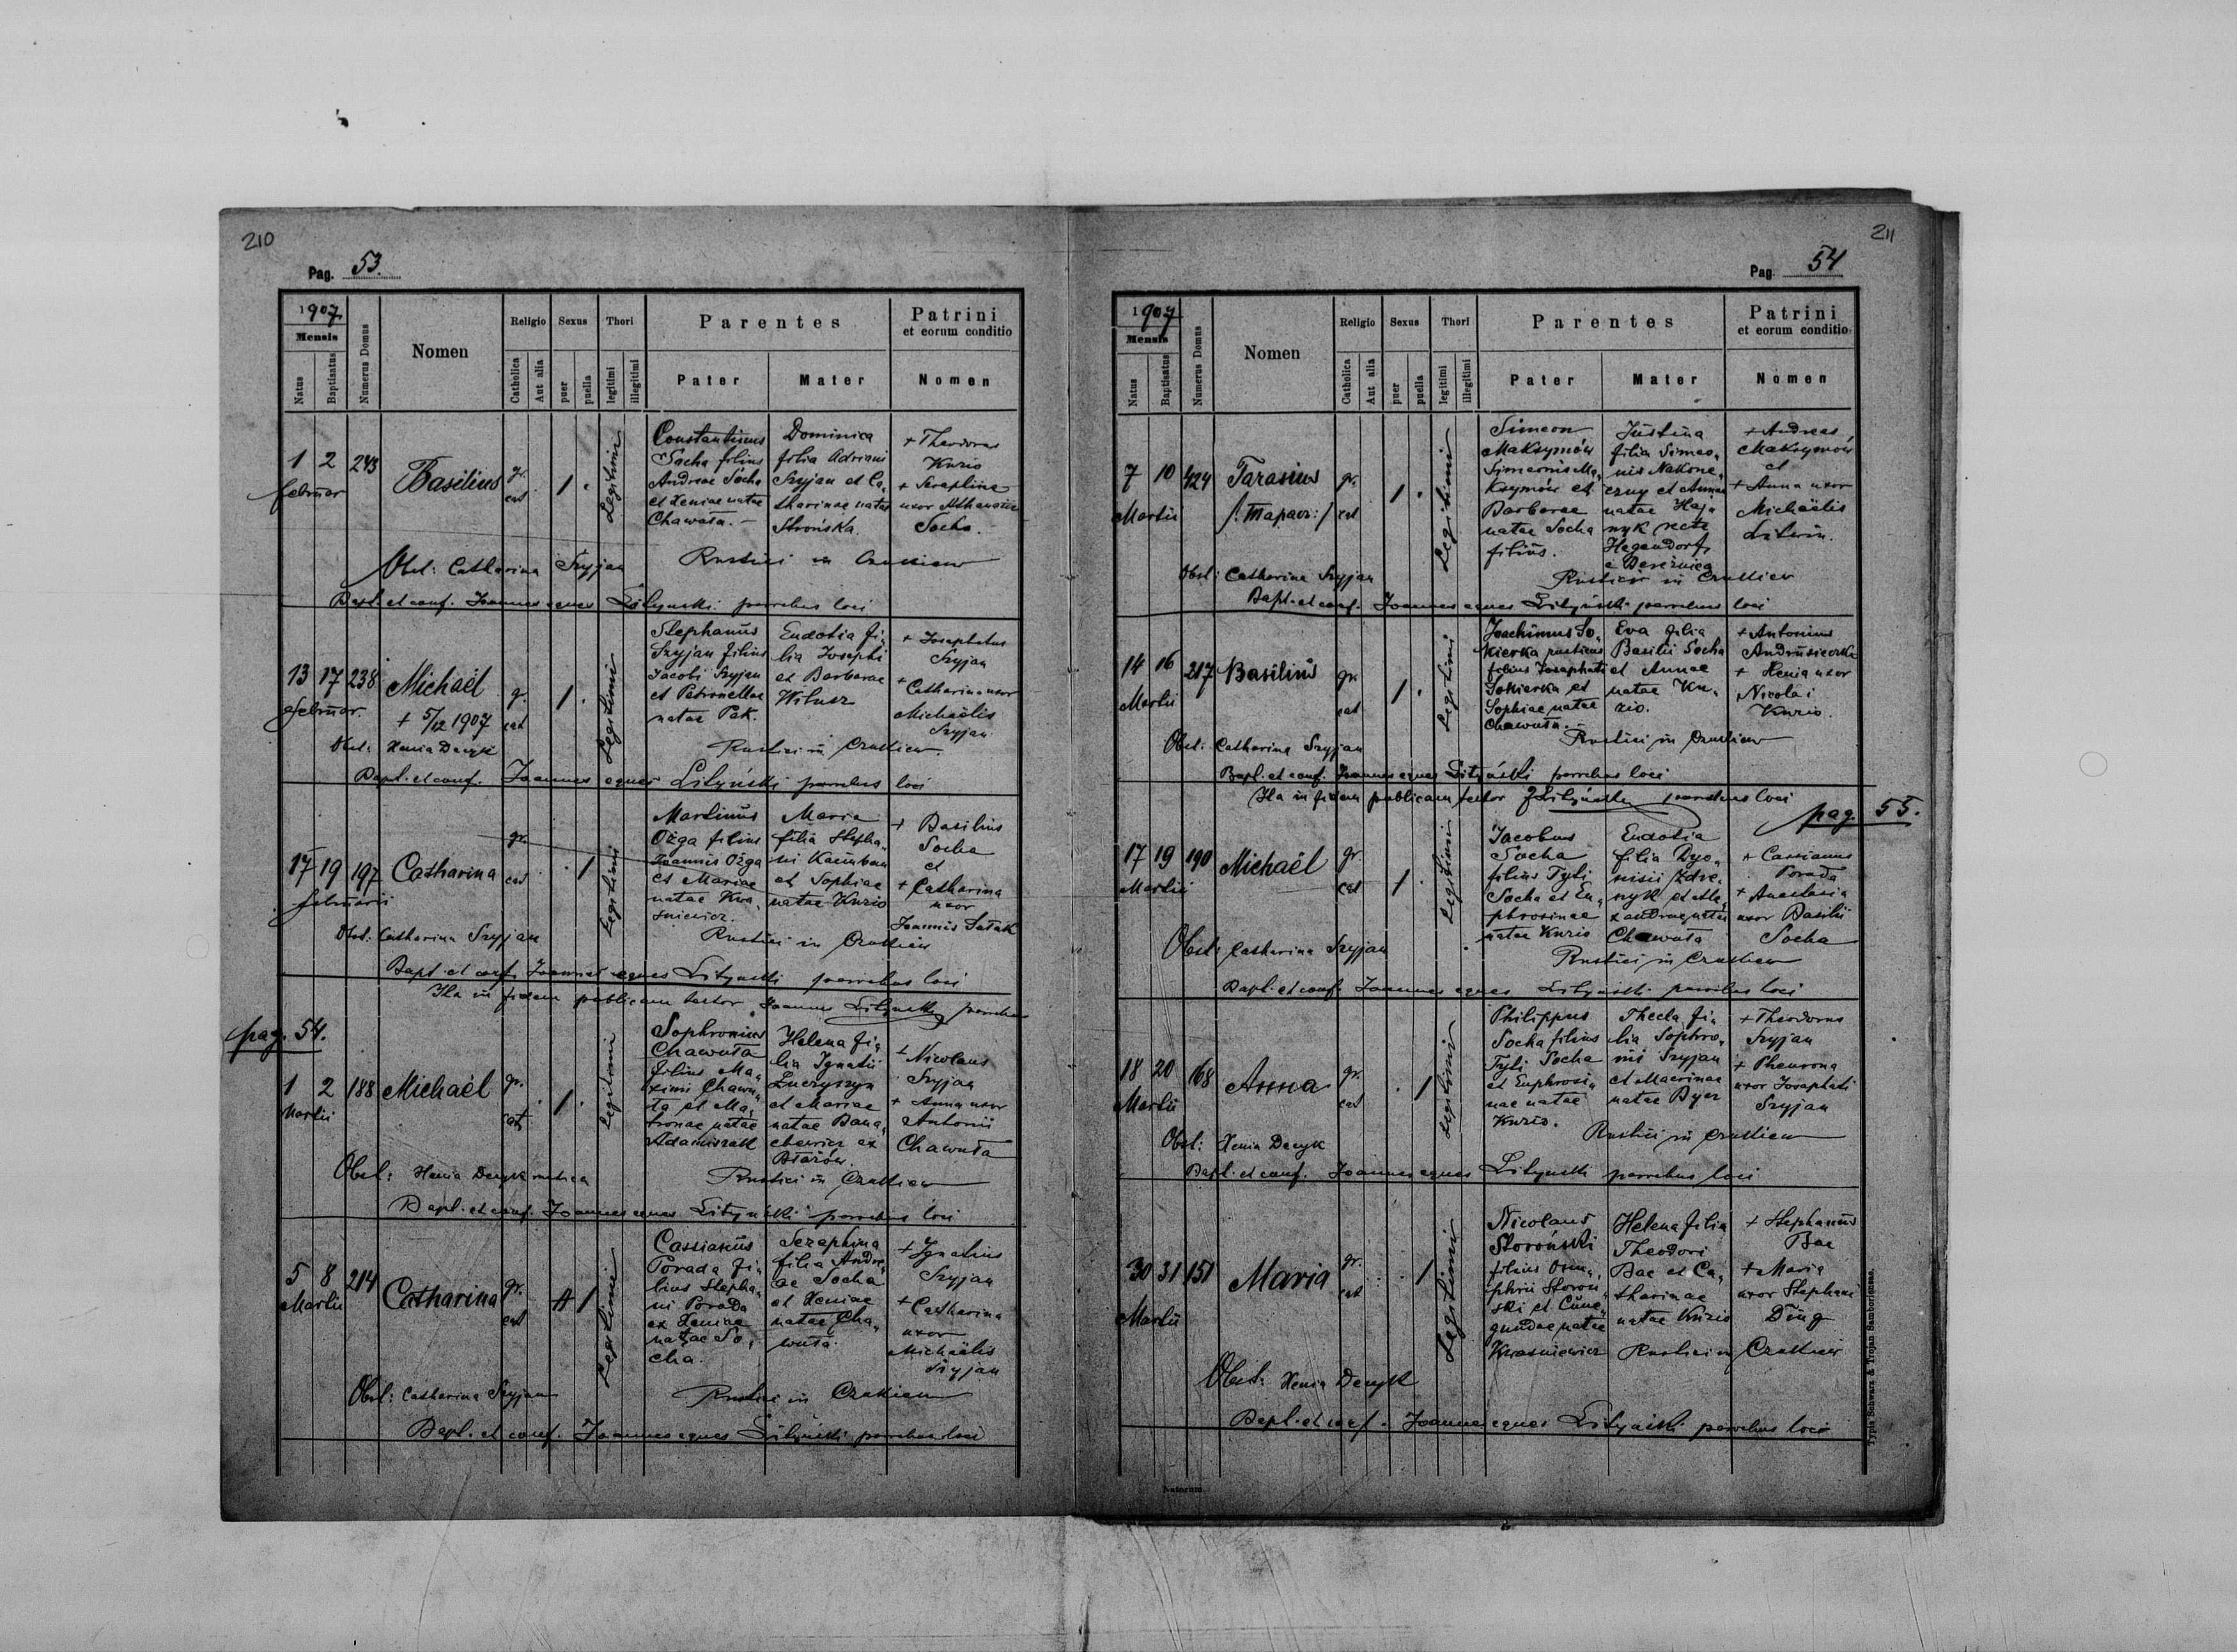 210
Pag. 53.
1907
Mensis
Natus
Baptisatus
Numerus Domus
Nomen
Religio
Catholica
Aut alia
Sexus
puer
puella
Thori
legitimi
illegitimi
Parentes
Pater
Mater
Patrini
et eorum conditio
Nomen
1 2 243 Basilius gr. 1 .
Februar cat
Legitimi
Constantinus
Socha filius
Andreae Socha
et Xeniae natae
Chawuła. –
Dominica
filia Adriani
Szyjan et Ca„
tharinae natae
Strońska.
+ Theodorus
Kurio
+ Seraphina
uxor Athanasii
Socha.
Obst: Catharina Szyjan Rustici in Crustiew
Bapt. et conf. Joannes eques Lityński parochus loci
13 17 238 Michaël gr. 1 .
Februar. + 5/12 1907 cat
Legitimi
Stephanus
Szyjan filius
Jacobi Szyjan
et Petronellae
natae Pak.
Eudotia fi„
lia Josephi
et Barbarae
Witusz
+ Josaphatus
Szyjan
+ Catharina uxor
Michaëlis
Szyjan
Obst: Xenia Decyk Rustici in Crustiew.
Bapt. et conf. Joannes eques Lityński parochus loci
17 19 197 Catharina gr. cat . 1
Februarii
Legitimi
Martinus
Ożga filius
Joannis Ożga
et Mariae
natae Kwa„
śniewicz.
Maria
filia Stepha„
ni Kacimban
et Sophiae
natae Kurio
+ Basilius
Socha
et
+ Catharina
uxor
Joannis Sałak
Obst: Catharina Szyjan Rustici in Crustiew
Bapt. et conf. Joannes eques Lityński parochus loci
Ita in fidem publicam testor Joannes Lityński parochus
pag. 54.
1 2 188 Michaël gr. 1 .
Martii cat
Legitimi
Sophronius
Chawuła
filius Ma„
ximi Chawu„
ła et Ma„
tronae natae
Adamiszak
Helena fi„
lia Ignatii
Luczyszyn
et Mariae
natae Bana„
chewicz ex
Błażów.
+ Nicolaus
Szyjan
+ Anna uxor
Antonii
Chawuła
Obst: Xenia Decyk rustica Rustici in Crustiew
Bapt. et conf. Joannes eques Lityński parochus loci
5 8 214 Catharina gr. 1
Martii cat
Legitimi
Cassianus
Porada fi„
lius Stepha„
ni Porada
et Xeniae
natae So„
cha.
Seraphina
filia Andre„
ae Socha
et Xeniae
natae Cha„
wuła.
+ Ignatius
Szyjan
+ Catharina
uxor
Michaëlis
Szyjan
Obst: Catharina Szyjan Rustici in Crustiew
Bapt. et conf. Joannes eques Lityński parochus loci
211
Pag. 54
1907
Mensis
Natus
Baptisatus
Numerus Domus
Nomen
Religio
Catholica
Aut alia
Sexus
puer
puella
Thori
legitimi
illegitimi
Parentes
Pater
Mater
Patrini
et eorum conditio
Nomen
7 10 424 Tarasius gr. 1 .
Martii /: Тарас :/ cat
Legitimi
Simeon
Maksymów
Simeonis Ma„
ksymów et
Barbarae
natae Socha
filius.
Justina
filia Simeo„
nis Nakone„
czny et Annae
natae Haj„
nyk recte
Hegendorf
e Bereźnica
+ Andreas
Maksymów
et
+ Anna uxor
Michaëlis
Litwin.
Obst: Catharina Szyjan Rustici in Crustiew
Bapt. et conf. Joannes eques Lityński parochus loci
14 16 217 Basilius gr. 1 .
Martii cat
Legitimi
Joachimus So„
kierka rusticus
filius Josaphati
Sokierka et
Sophiae natae
Chawuła.
Eva filia
Basilii Socha
et Annae
natae Ku„
rio.
+ Antonius
Andrusieczko
+ Xenia uxor
Nicolai
Kurio.
Obst: Catharina Szyjan Rustici in Crustiew
Bapt. et conf. Joannes eques Lityński parochus loci
Ita in fidem publicam testor J Lityński parochus loci
pag. 55.
17 19 190 Michaël gr. 1 .
Martii cat
Legitimi
Jacobus
Socha
filius Tyti
Socha et Eu„
phrosinae
natae Kurio
Eudotia
filia Dyo„
nisii Zdre„
nyk et Ale„
xandrae natae
Chawuła
+ Cassianus
Porada
+ Anastasia
uxor Basilii
Socha
Obst: Catharina Szyjan Rustici in Crustiew
Bapt. et conf. Joannes eques Lityński parochus loci
18 20 168 Anna gr. . 1
Martii cat
Legitimi
Philippus
Socha filius
Tyti Socha
et Euphrosi„
nae natae
Kurio.
Thecla fi„
lia Sophro„
nii Szyjan
et Macrinae
natae Byer
+ Theodorus
Szyjan
+ Pheurona
uxor Josaphati
Szyjan
Obst: Xenia Decyk Rustici in Crustiew
Bapt. et conf. Joannes eques Lityński parochus loci
30 31 151 Maria gr. . 1
Martii cat
Legitimi
Nicolaus
Storoński
filius Onu„
phrii Storoń„
ski et Cune„
gundae natae
Kwaśniewicz
Helena filia
Theodori
Bac et Ca„
tharinae
natae Kurio
+ Stephanus
Bac
+ Maria
uxor Stephani
Ding
Rustici in Crustiew
Obst: Xenia Decyk
Bapt. et conf. Joannes eques Lityński parochus loci
Natorum
Typis Schwarz & Trojan Samboriense.